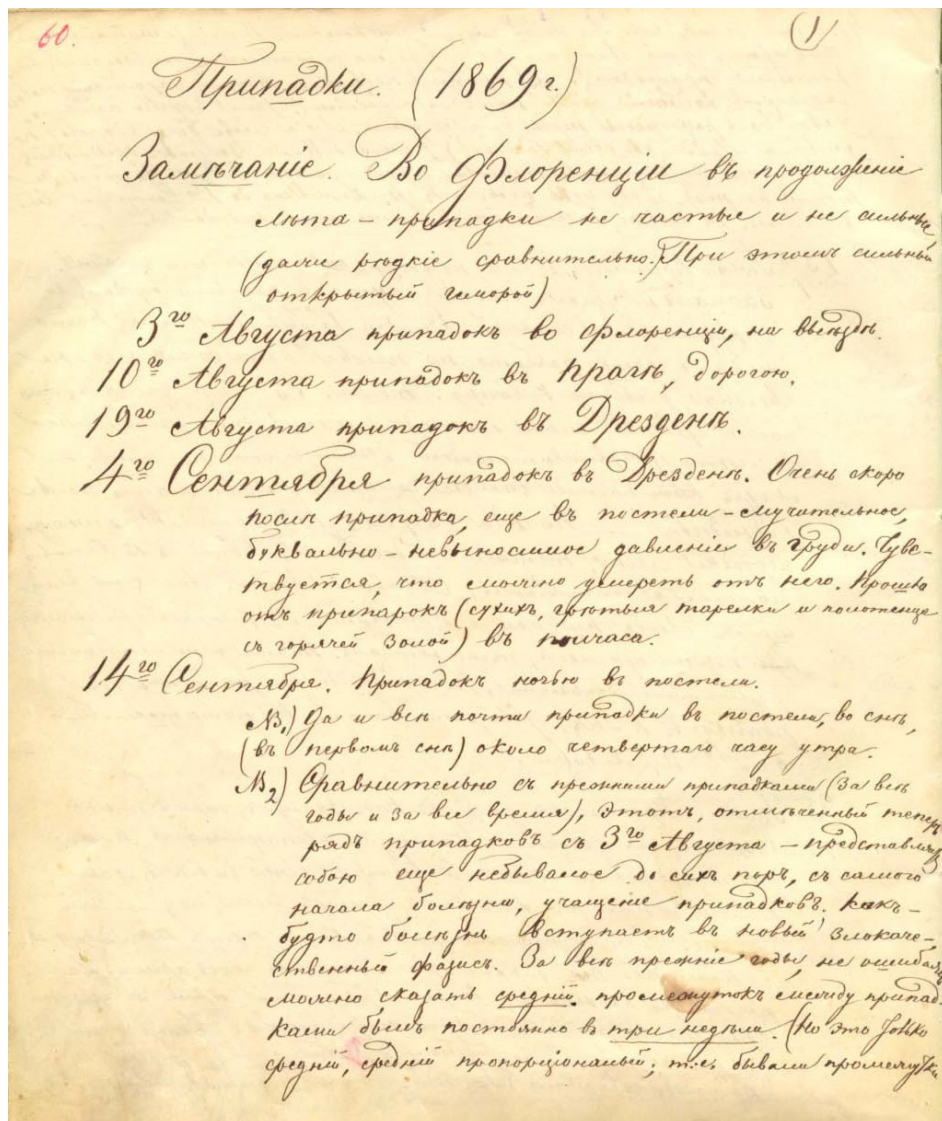 60.
(1)
Припадки. (1869 г.)
Замѣчаніе. Во Флоренціи въ продолженіе
лѣта – припадки не частые и не сильные
(даже рѣдкіе сравнительно. При этомъ сильный
открытый геморой)
3го Августа припадокъ во Флоренціи, на выѣздѣ.
10го Августа припадокъ въ Прагѣ, дорогою.
19го Августа припадокъ въ Дрезденѣ.
4го Сентября припадокъ въ Дрезденѣ. Очень скоро
послѣ припадка, еще въ постели – мучительное,
буквально – невыносимое давленіе въ груди. Чувс-
твуется, что можно умереть отъ него. Прошло
отъ припарокъ (сухихъ, грѣтыя тарелки и полотенце
съ горячей золой) въ полчаса.
14го Сентября. Припадокъ ночью въ постели.
NB1) Да и всѣ почти припадки въ постели, во снѣ,
(въ первомъ снѣ) около четвертаго часу утра.
NB2) Сравнительно съ прежними припадками (за всѣ
годы и за все время), этотъ, отмѣченный теперь
рядъ припадковъ съ 3го Августа – представляетъ
собою еще небывалое до сихъ поръ, съ самого
начала болѣзни, учащеніе припадковъ. Какъ-
будто болѣзнь вступаетъ въ новый злокаче-
ственный фазисъ. За всѣ прежніе годы, не ошибаясь
можно сказать средній промежутокъ между припад-
ками былъ постоянно въ три недѣли. (Но это только
средній, средній пропорціональный; т.е. бывали промежутки